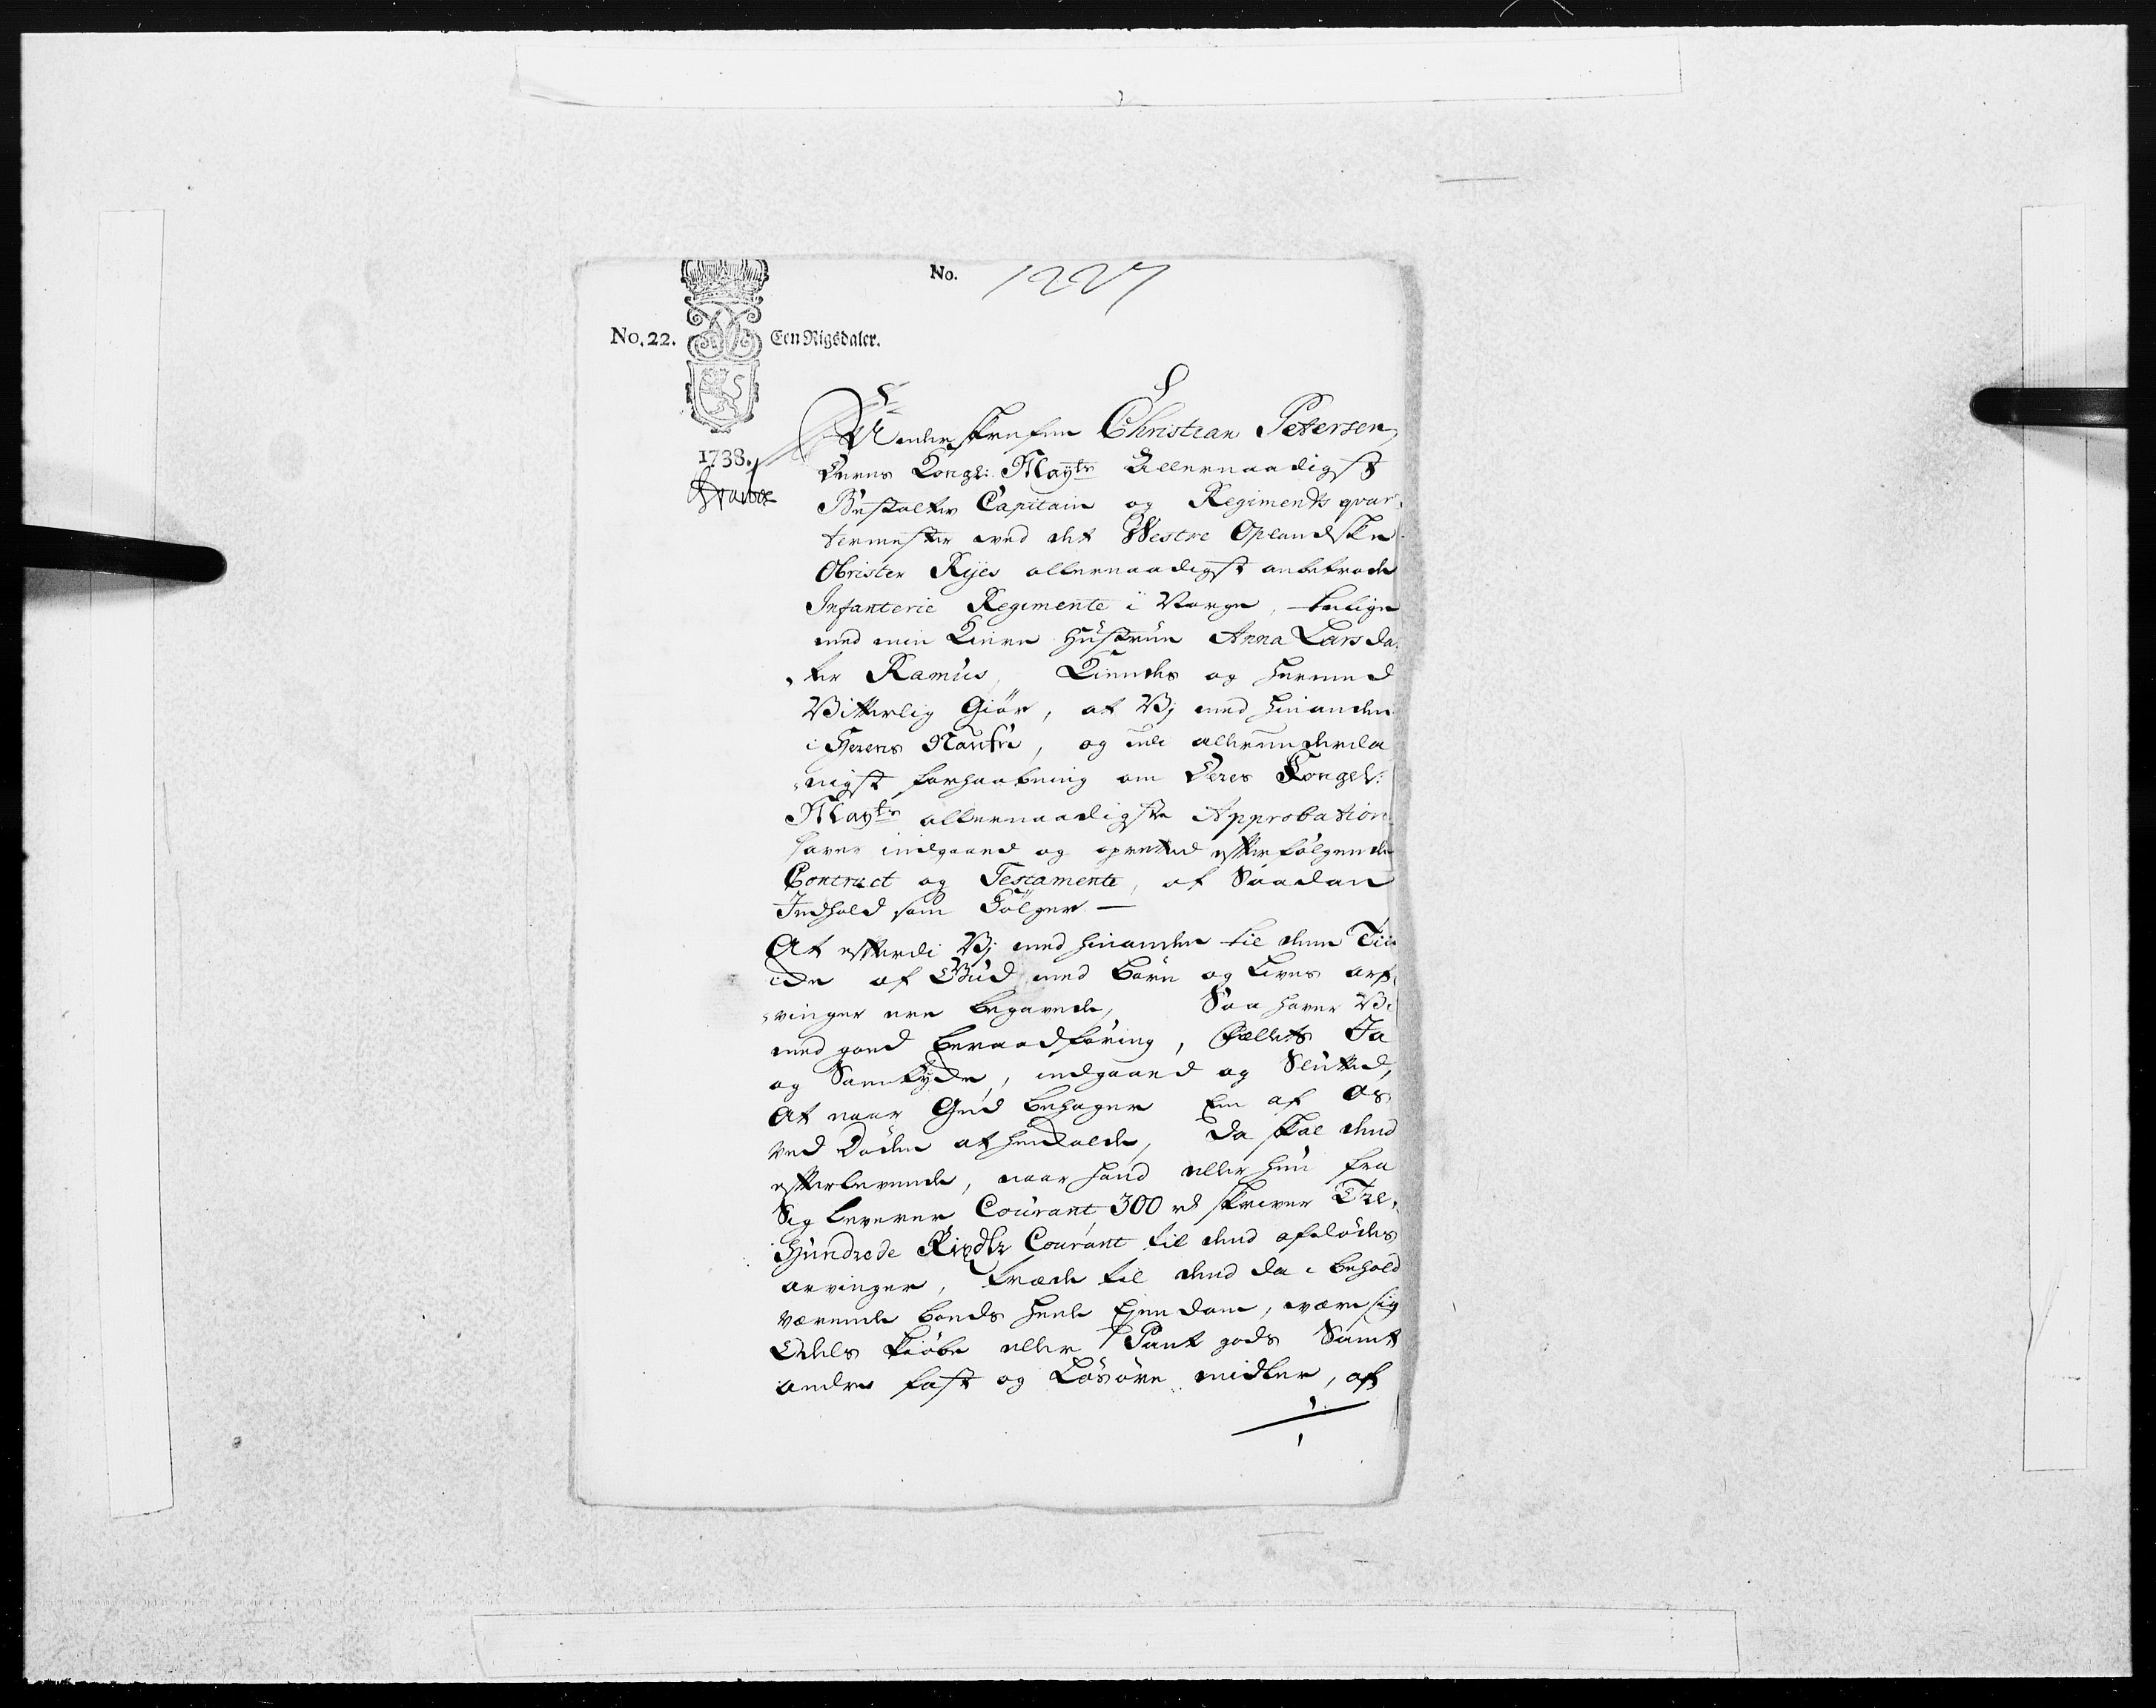 No. 1227
No. 22. Een Rigsdaler.
1738.
Underskrefne Christian Petersen,
Deres Kongl: Mayts Allernaadigst
Bestalter Capitain og Regiments qvar-
termester ved det Westre Oplandske
Obrister Rÿes allernaadigst anbetroede
Infanterie Regimente i Norge, tillige
med min Kiere Hustrue Anna Larsda-
ter Ramus, Kiendes og hermed
Vitterlig Giör, at Vj med hinanden
i Herens Naufn, og udi allerunderda
nigst forhaabning om Deres Kongel:
Mayts allernaadigste Approbation
haver indgaaed og opretted efterfölgende
Contract og Testamente, af Saadan
Indhold som Fölger —
At efterdi Vj med hinanden til denne Tii
de af Gud med Börn og Livs arf-
vinger ere begavede, Saa haver Vi
med goed beraadföring, felleds Ja
og Samtyde, indgaaed og Slutted,
At naar Gud behager Een af Os
ved Döden at henkalde, da skal dend
efterlevende, naar hand eller hun fra
Sig leverer Courant 300 rd skriver Tre
Hundrede Rixdlr Courant til dend afdödes
arvinger, træde til dend da i behold
værende boeds heele Ejendom, være sig
Odels kiöbe eller Pant gods Samt
andre fast og Lösöre midler, af